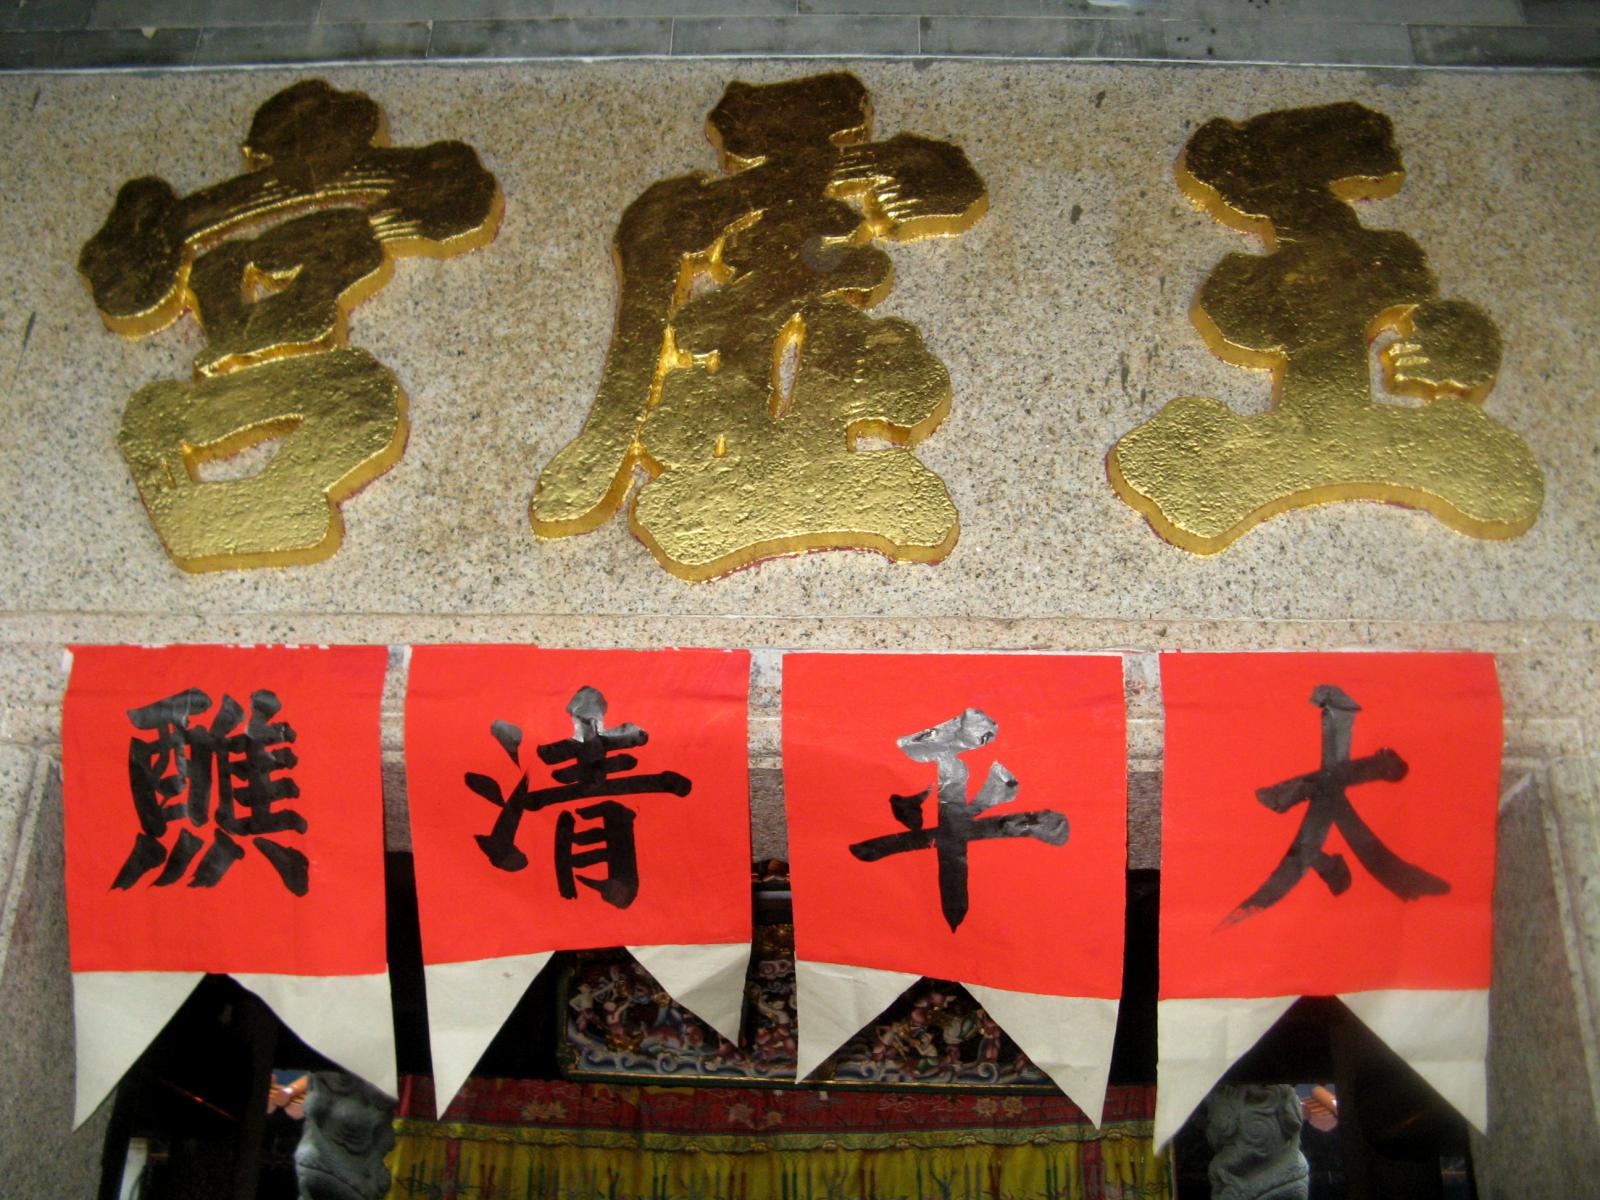 玉虛宮
太平清醮